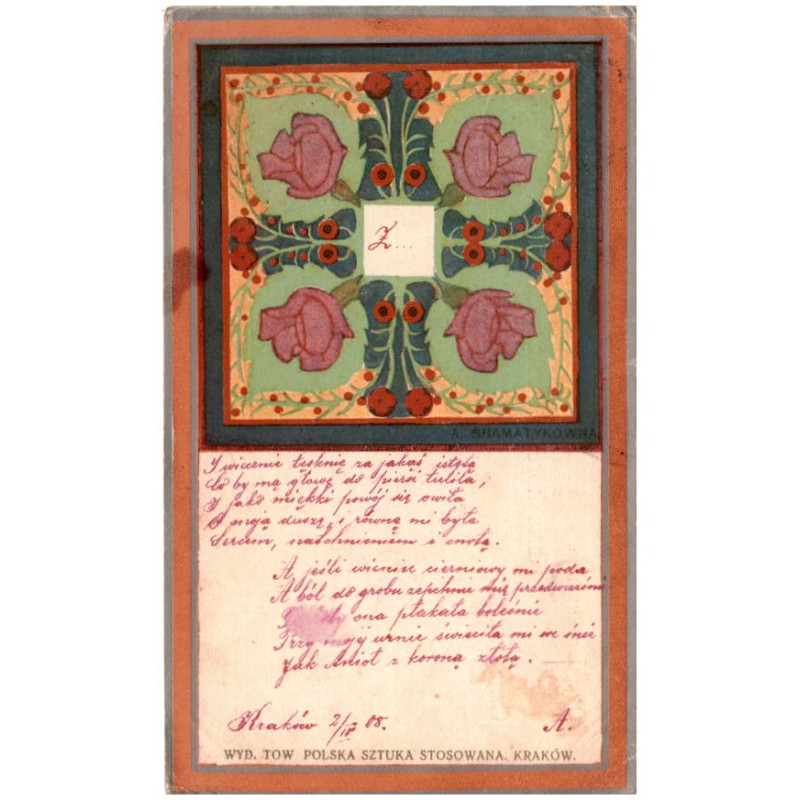 Z...
A. GRAMATYKÓWNA
I wiecznie tęsknię za jakąś istotą
Co by mą głowę do piersi tuliła,
I jako miękki powój się owiła
O moją duszę, i równą mi była
Sercem, natchnieniem i cnotą.
A jeśli wieniec cierniowy mi poda
A ból do grobu zepchnie mię przedwcześnie
ona płakała boleśnie
Przy mojej urnie świeciła mi we śnie
Jak Anioł z koroną złotą.
Kraków 2/IV 08. A.
WYD. TOW POLSKA SZTUKA STOSOWANA. KRAKÓW.